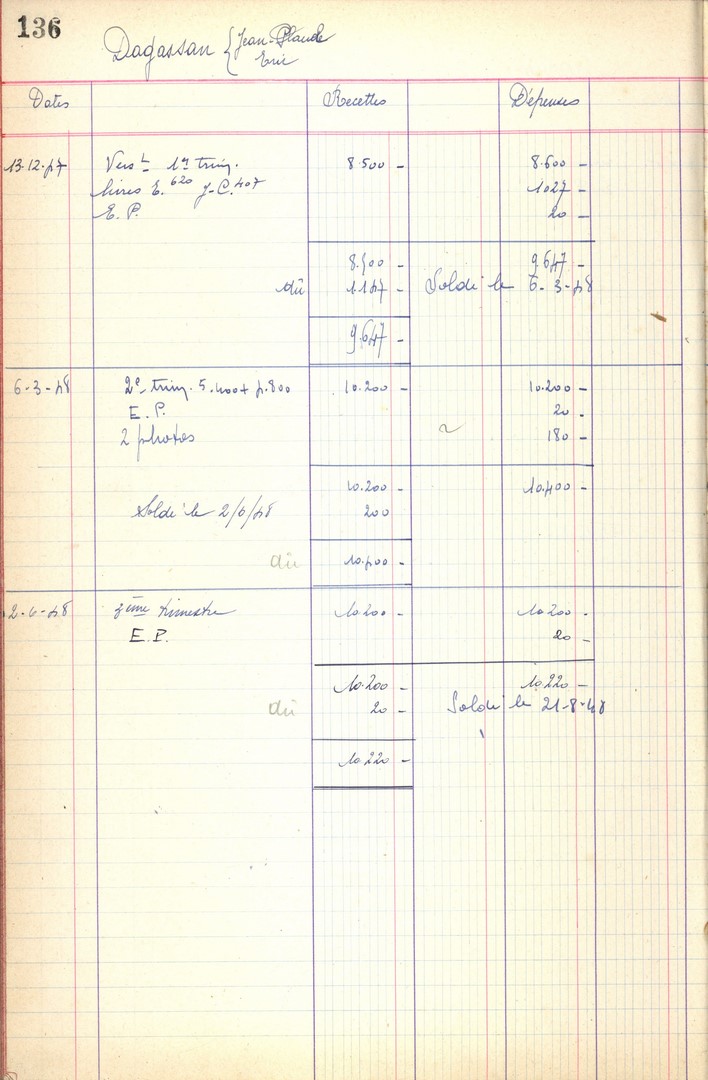 136
Dagassan { Jean-Claude
Eric
Dates Recettes Dépenses
13-12-47 Verst 1er trim. 8.500 - 8.600 -
livres E. 620 J-C. 407 1027 -
E. P. 20 -
8.500 - 9.647 -
dû 1.147 - Soldé le 6-3-48
9.647 -
6-3-48 2e trim. 5.400 + 4.800 10.200 - 10.200 -
E. P. 20 -
2 photos 180 -
10.200 - 10.400 -
Soldé le 2/6/48 200
dû 10.400 -
2-6-48 3ème trimestre 10.200 - 10.200 -
E. P. 20 -
10.200 - 10.220 -
dû 20 - Soldé le 21-8-48
10.220 -